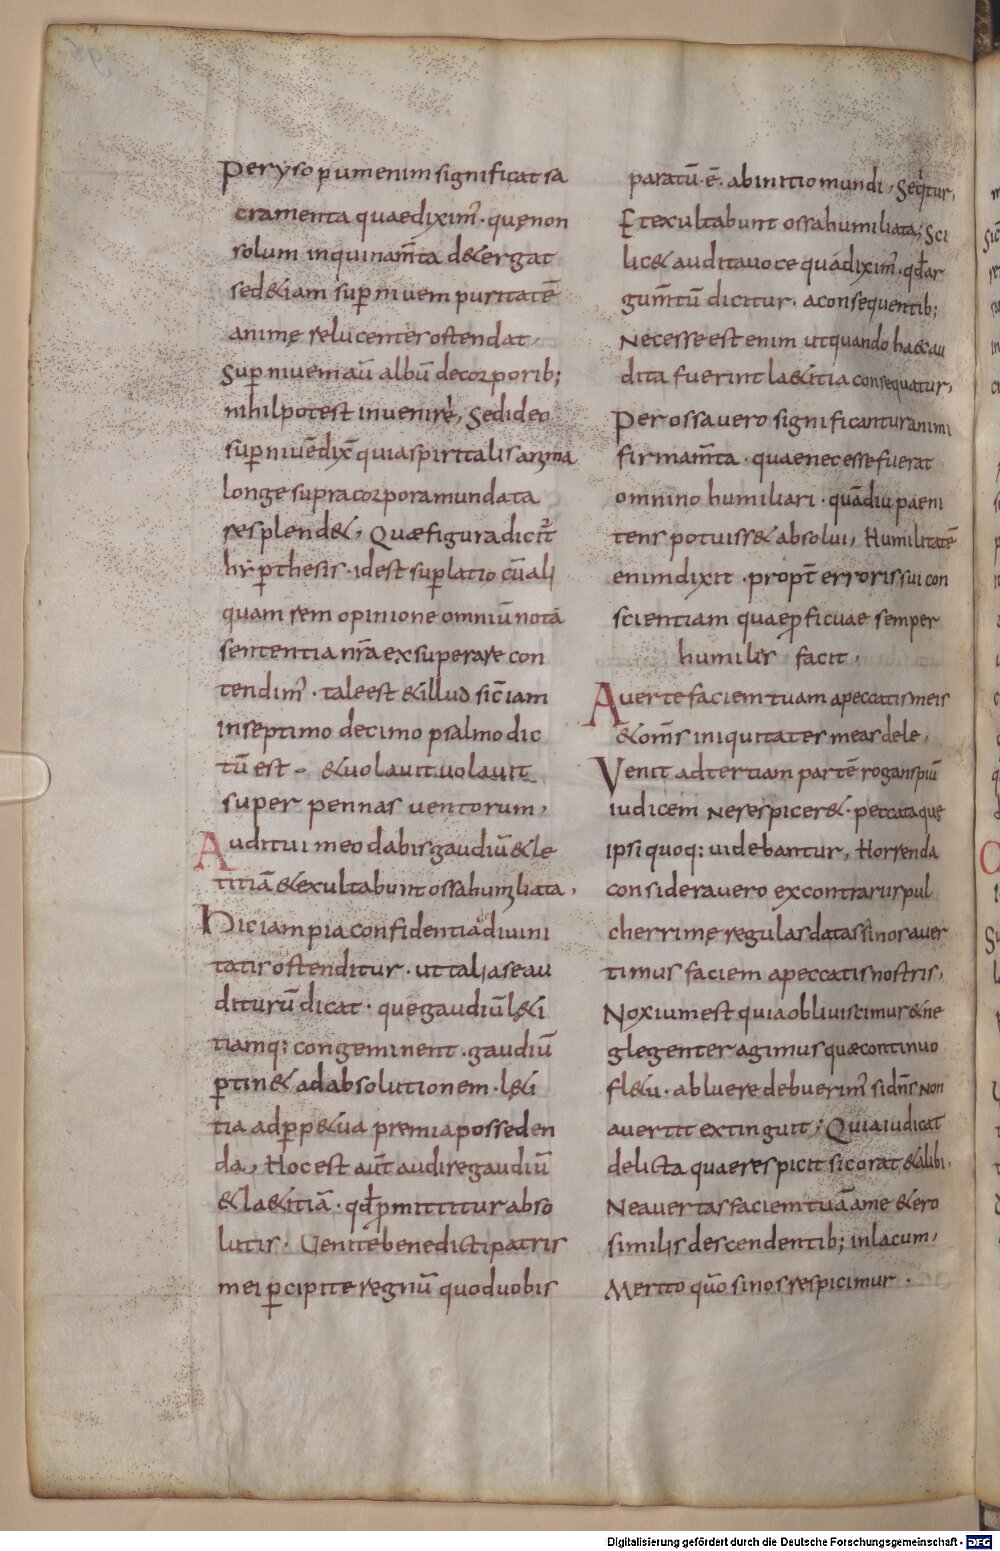 Per ysopum enim significat sa
cramenta quae diximꝰ · quę non
solum inquinam̅ta d&ergat
sed &iam sup̱ niuem puritatē
animę relucenter ostendat,
Sup̱ niuem aū albū de corporib;
nihil potest inuenire, Sed ideo
sup̱ niuē dix̄ quia spiritalis anima
longe supra corpora mundata
resplend&, Quae figura dicit᷑
hẏp̱thesis · id est sup̱latio cū ali
quam rem opinione omniū nota
sententia nr̄a exsuperare con
tendimꝰ · tale est & illud sic̄ iam
in septimo decimo psalmo dic
tū est - & uolauit uolauit
super pennas uentorum,
Auditui meo dabis gaudiū & le
titiā & exultabunt ossa humiliata,
Hic iam pia confidentia diuini
tatis ostenditur · ut talia se au
diturū dicat · quę gaudiū l&i
tiamq; congeminent · gaudiū
p̱tin& ad absolutionem · l&i
tia ad p̱p&ua premia possiden
da, Hoc est aūt audire gaudiū
& la&itiā · qđ p̱mittitur abso
lutis · Uenite benedicti patris
mei p̱cipite regnū quod uobis
paratū · ē · ab initio mundi, Seqͥtur,
Et exultabunt ossa humiliata; Sci
lic& audita uoce quā diximꝰ · qđ ar
gum̅tū dicitur · a consequentib;
Necesse est enim ut quando haec au
dita fuerint la&itia consequatur,
Per ossa uero significantur animi
firmam̅ta · quae necesse fuerat
omnino humiliari · quādiu paeni
tens potuiss& absolui, Humilitatē
enim dixit · propt̄ erroris sui con
scientiam quae ꝓficuae semper
humiles facit,
Auerte faciem tuam a peccatis meis
& om̅s iniquitates meas dele,
Venit ad tertiam partē rogans piū
iudicem ne respicer& · peccata que
ipsi quoq; uidebantur, Horrenda
considera uero ex contrariis pul
cherrimę regulas datas si nos auer
timus faciem a peccatis nostris,
Noxium est quia obliuiscimur & ne
glegenter agimus quae continuo
fl&u · abluere debuerimꝰ si dn̄s non
auertit extinguit; Quia iudicat
delicta quae respicit sic orat & alibi,
Ne auertas faciem tuā a me & ero
similis descendentib; in lacum,
Merito quō si nos respicimur ·
Digitalisierung gefördert durch die Deutsche Forschungsgemeinschaft - DFG